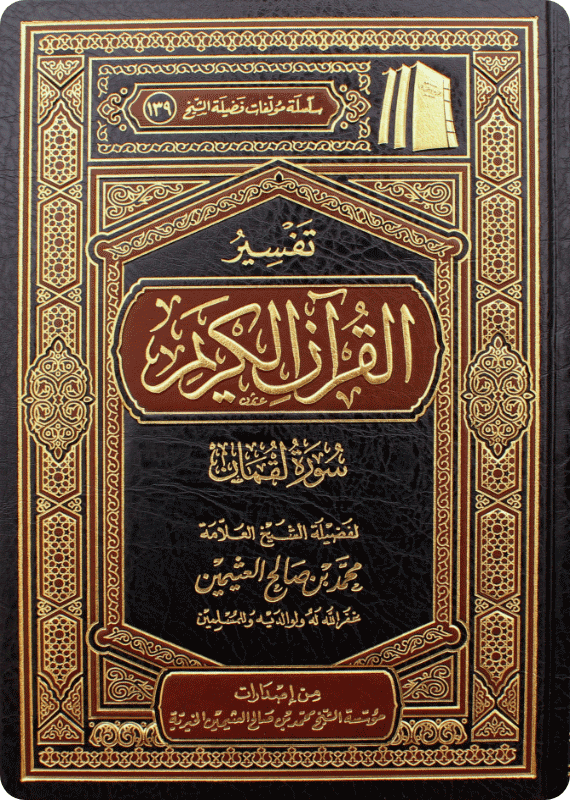 سلسلة مؤلفات فضيلة الشيخ ١٣٩
تَفْسِيرُ
القُرْآنِ الكَرِيمِ
سُورَةُ لُقْمَانَ
لفضيلة الشيخ العلّامة
محمّد بن صالح العثيمين
غفر الله له ولوالديه وللمسلمين
من إصدارات
مؤسسة الشيخ محمد بن صالح العثيمين الخيرية